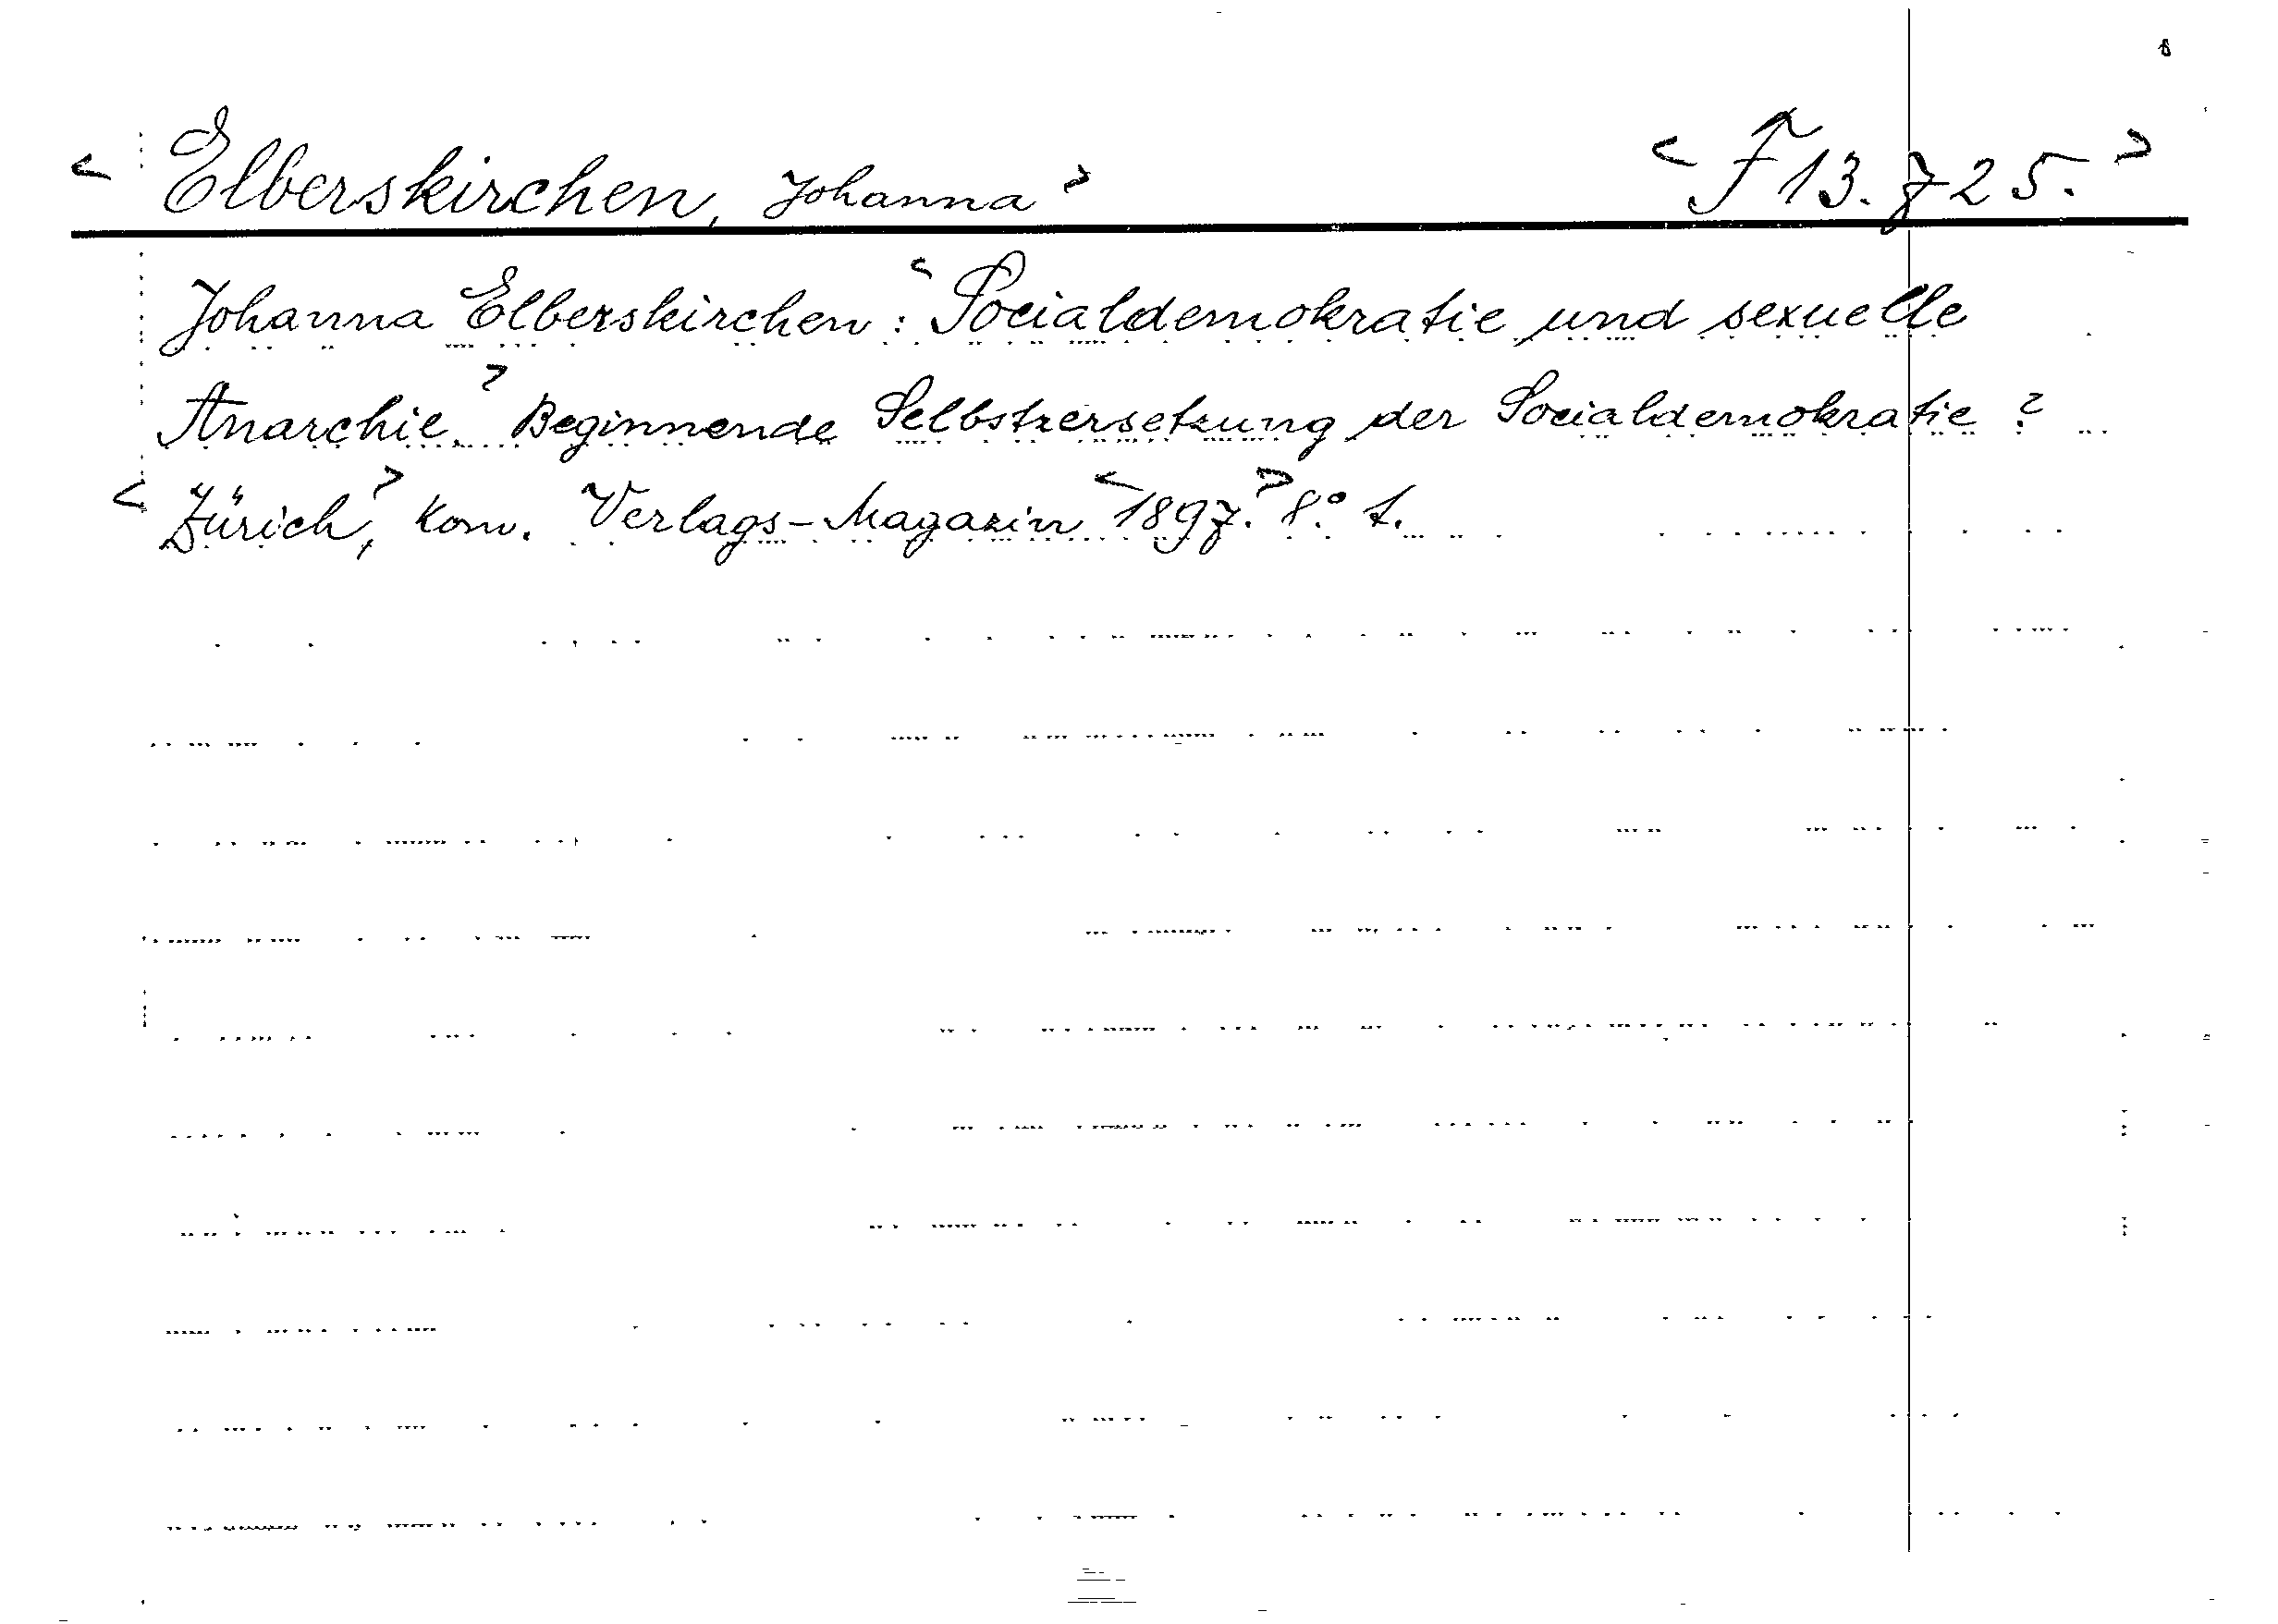 < Elberskirchen, Johanna > < F 13.725. >
Johanna Elberskirchen: < Socialdemokratie und sexuelle
Anarchie. > Beginnende Selbstzersetzung der Socialdemokratie?
< Zürich, > Kom. Verlags-Magazin < 1897. > 8.° 1.